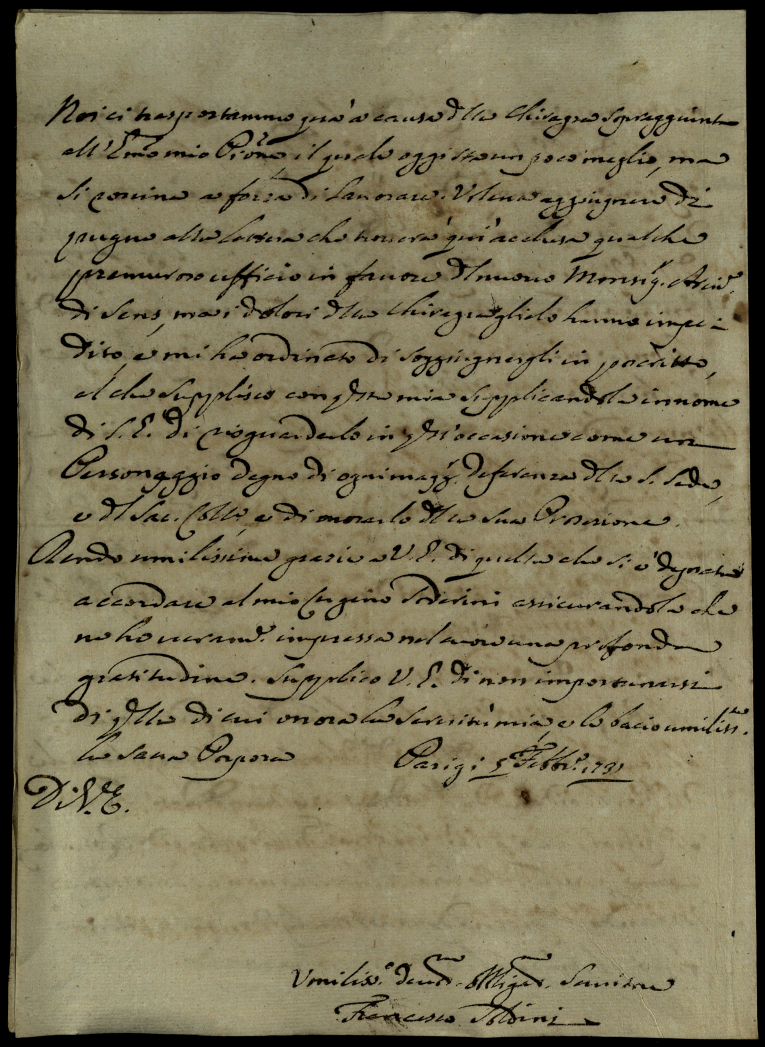 Noi ci trasportammo quà a causa dlla Chiragra sopraggiunta
all' Emo mio Prõne il quale oggi sta un poco meglio, ma
si rovina a forza di lavorare. Voleva aggiugnere di
pugno alla lettera che troverà qui acclusa qualche
premuroso ufficio in favore dl nuovo Monsig. Arciv.
di Sens, ma i dolori dlla Chiragra glielo hanno impe=
dito, e mi ha ordinato di soggiugnergli in poscritto,
al che supplisco con qsta mia supplicandola in nome
di S. E. di risguardarlo in qst' occasione come un
Personaggio degno di ogni magg. deferenza dlla S. Sede,
e dl Sac. Coll., e di onorarlo dlla sua Protezione.
Rendo umilissime grazie a V. E. di quella che si è degnata
accordare al mio Cugino Soderini assicurandola che
ne ho veram. impressa nel cuore una profonda
gratitudine. Supplico V. E. di non importunarsi
di qlla di cui onora la servitù mia, e le bacio umiliss.te
la Sacra Porpora Parigi 5 Febbr. 1731
Di V. E.
Umiliss. Devot. Obbligat. Servitore
Francesco